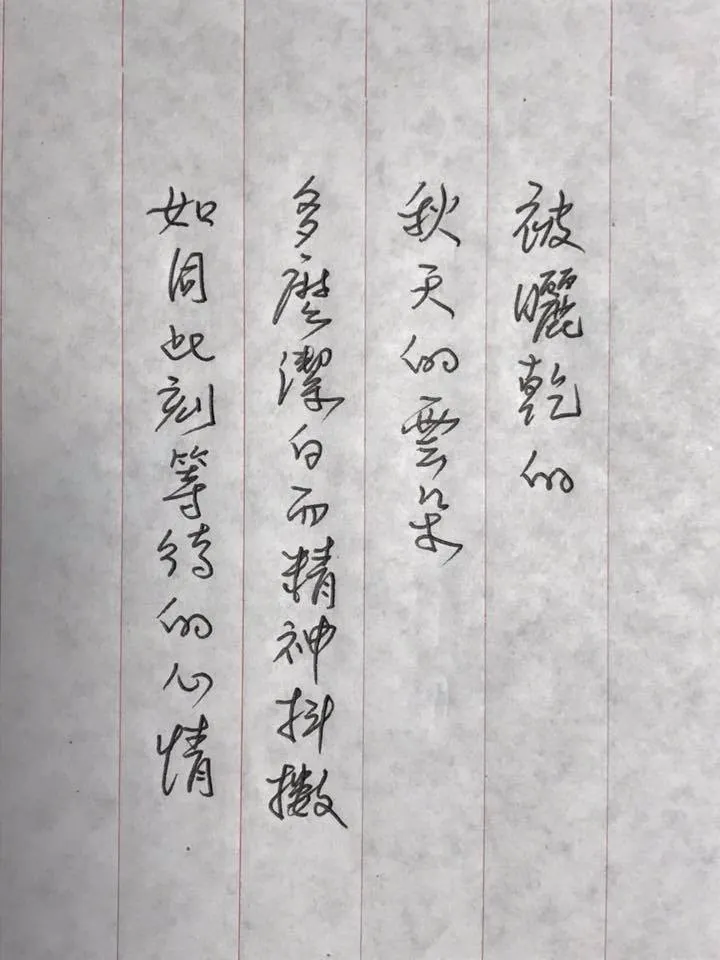 被曬乾的
秋天的雲朵
多麼潔白而精神抖擻
如同此刻等待的心情